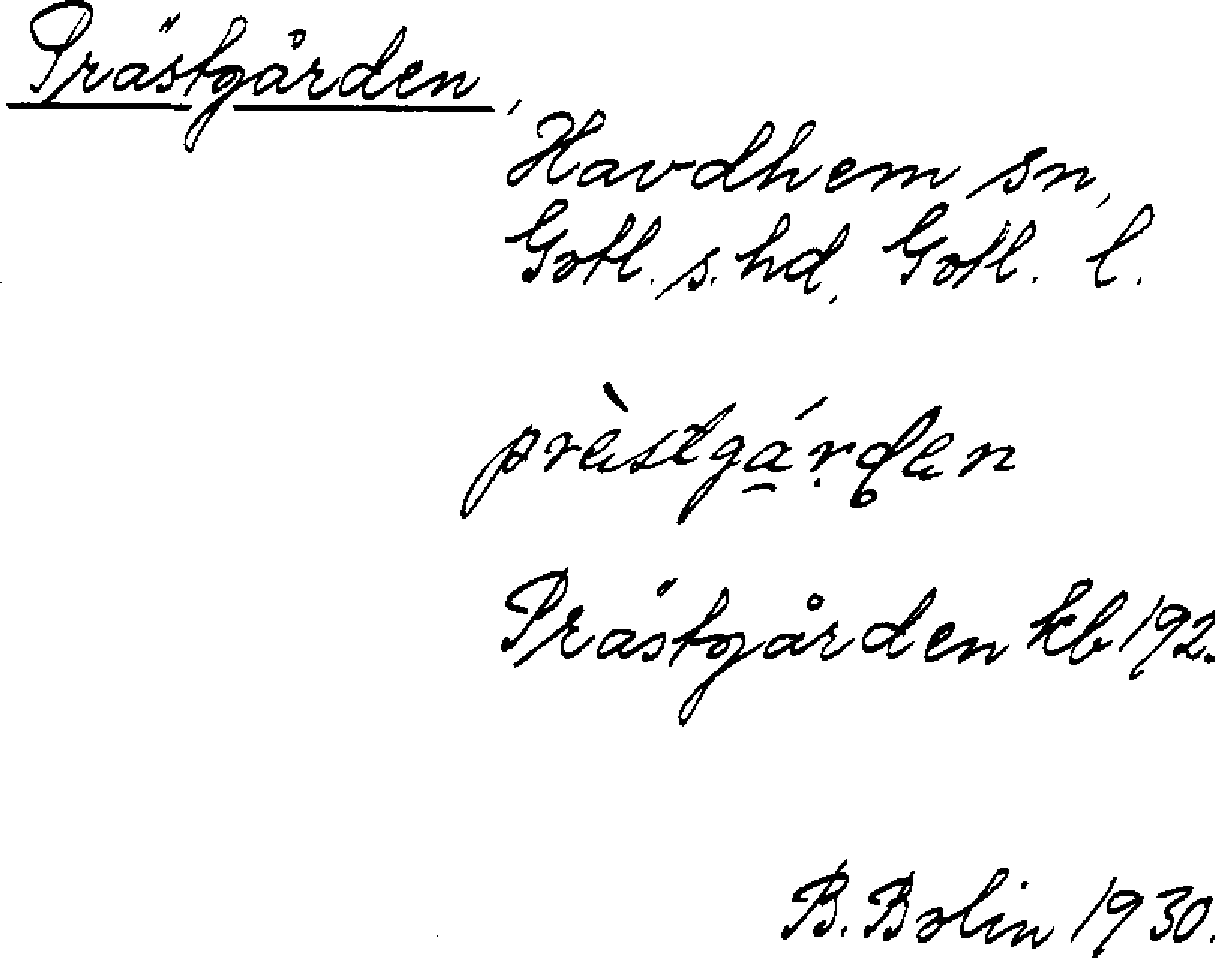 Prästgården,
Havdhem sn,
Gotl. s. hd, Gotl. l.
prästgården
Prästgården kb 192
B. Bolin 1930.